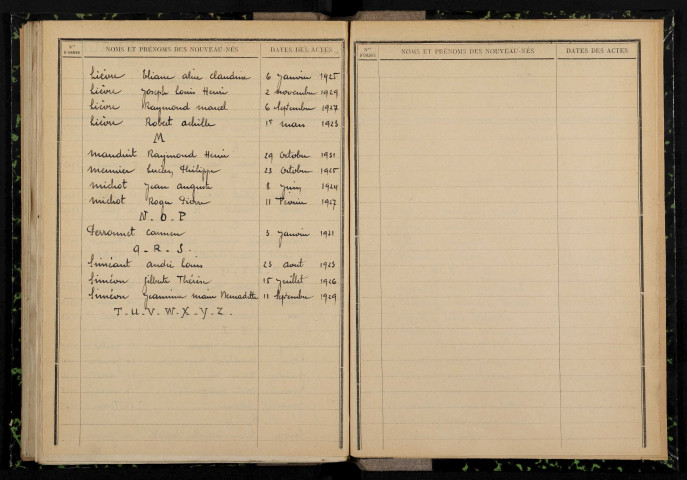 Nos D'ORDRE NOMS ET PRÉNOMS DES NOUVEAU-NÉS DATES DES ACTES
Lièvre Eliane alice claudine 6 Janvier 1925
Lièvre Joseph Louis Henri 2 novembre 1929
Lièvre Raymond marcel 6 Septembre 1927
Lièvre Robert achille 1er mars 1923
M
mauduit Raymond Henri 29 Octobre 1931
meunier Lucien Philippe 23 Octobre 1925
michot Jean auguste 8 Juin 1924
michot Roger Pierre 11 Février 1927
N. O. P
Perronnet Carmen 3 Janvier 1921
Q. R. S.
Siméant andré Louis 23 aout 1923
Siméon Gilberte Thérèse 15 Juillet 1926
Siméon Jeannine marie Bernadette 11 Septembre 1929
T. U. V. W. X. Y. Z.
Nos D'ORDRE NOMS ET PRÉNOMS DES NOUVEAU-NÉS DATES DES ACTES